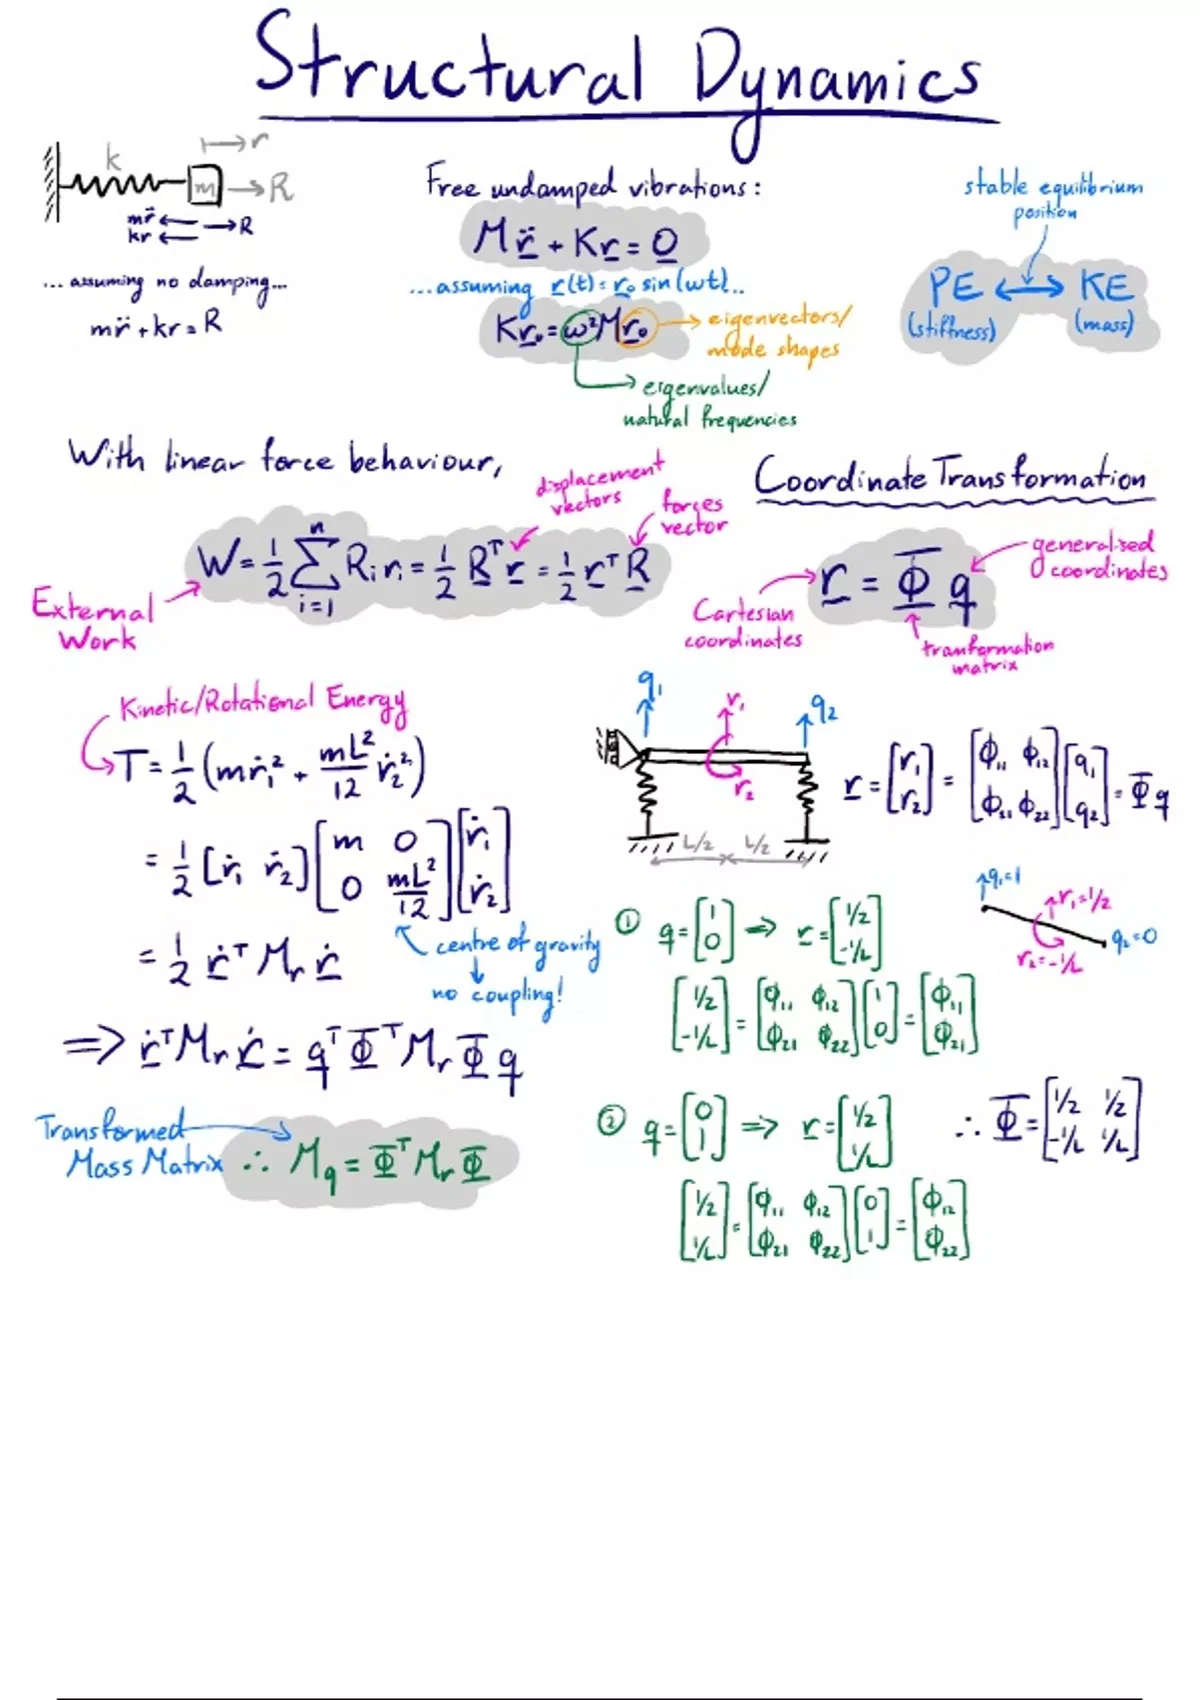 Structural Dynamics
k
r
m
R
mr̈
kr
R
... assuming no damping...
mr̈ + kr = R
Free undamped vibrations:
Mr̈ + Kr = 0
...assuming r(t) = r₀ sin(wt)...
Kr₀ = ω²Mr₀
eigenvectors/
mode shapes
eigenvalues/
natural frequencies
stable equilibrium
position
PE ⟷ KE
(stiffness)
(mass)
With linear force behaviour,
displacement
vectors
forces
vector
W = 1/2 Σ_{i=1}^{n} Rᵢ rᵢ = 1/2 Rᵀ r = 1/2 rᵀ R
External
Work
Coordinate Transformation
r = Φ q
generalised
coordinates
Cartesian
coordinates
tranformation
matrix
Kinetic/Rotational Energy
T = 1/2 (mṙ₁² + mL²/12 ṙ₂²)
= 1/2 [ṙ₁ ṙ₂] [m 0; 0 mL²/12] [ṙ₁; ṙ₂]
= 1/2 ṙᵀ Mr ṙ
centre of gravity
no coupling!
⇒ ṙᵀ Mr ṙ = qᵀ Φᵀ Mr Φ q
Transformed
Mass Matrix
∴ Mq = Φᵀ Mr Φ
q₁
r₁
q₂
r₂
L/2
L/2
r = [r₁; r₂] = [ϕ₁₁ ϕ₁₂; ϕ₂₁ ϕ₂₂] [q₁; q₂] = Φ q
q₁=1
r₁=1/2
r₂=-1/L
q₂=0
① q = [1; 0] ⇒ r = [1/2; -1/L]
[1/2; -1/L] = [ϕ₁₁ ϕ₁₂; ϕ₂₁ ϕ₂₂] [1; 0] = [ϕ₁₁; ϕ₂₁]
② q = [0; 1] ⇒ r = [1/2; 1/L]
∴ Φ = [1/2 1/2; -1/L 1/L]
[1/2; 1/L] = [ϕ₁₁ ϕ₁₂; ϕ₂₁ ϕ₂₂] [0; 1] = [ϕ₁₂; ϕ₂₂]